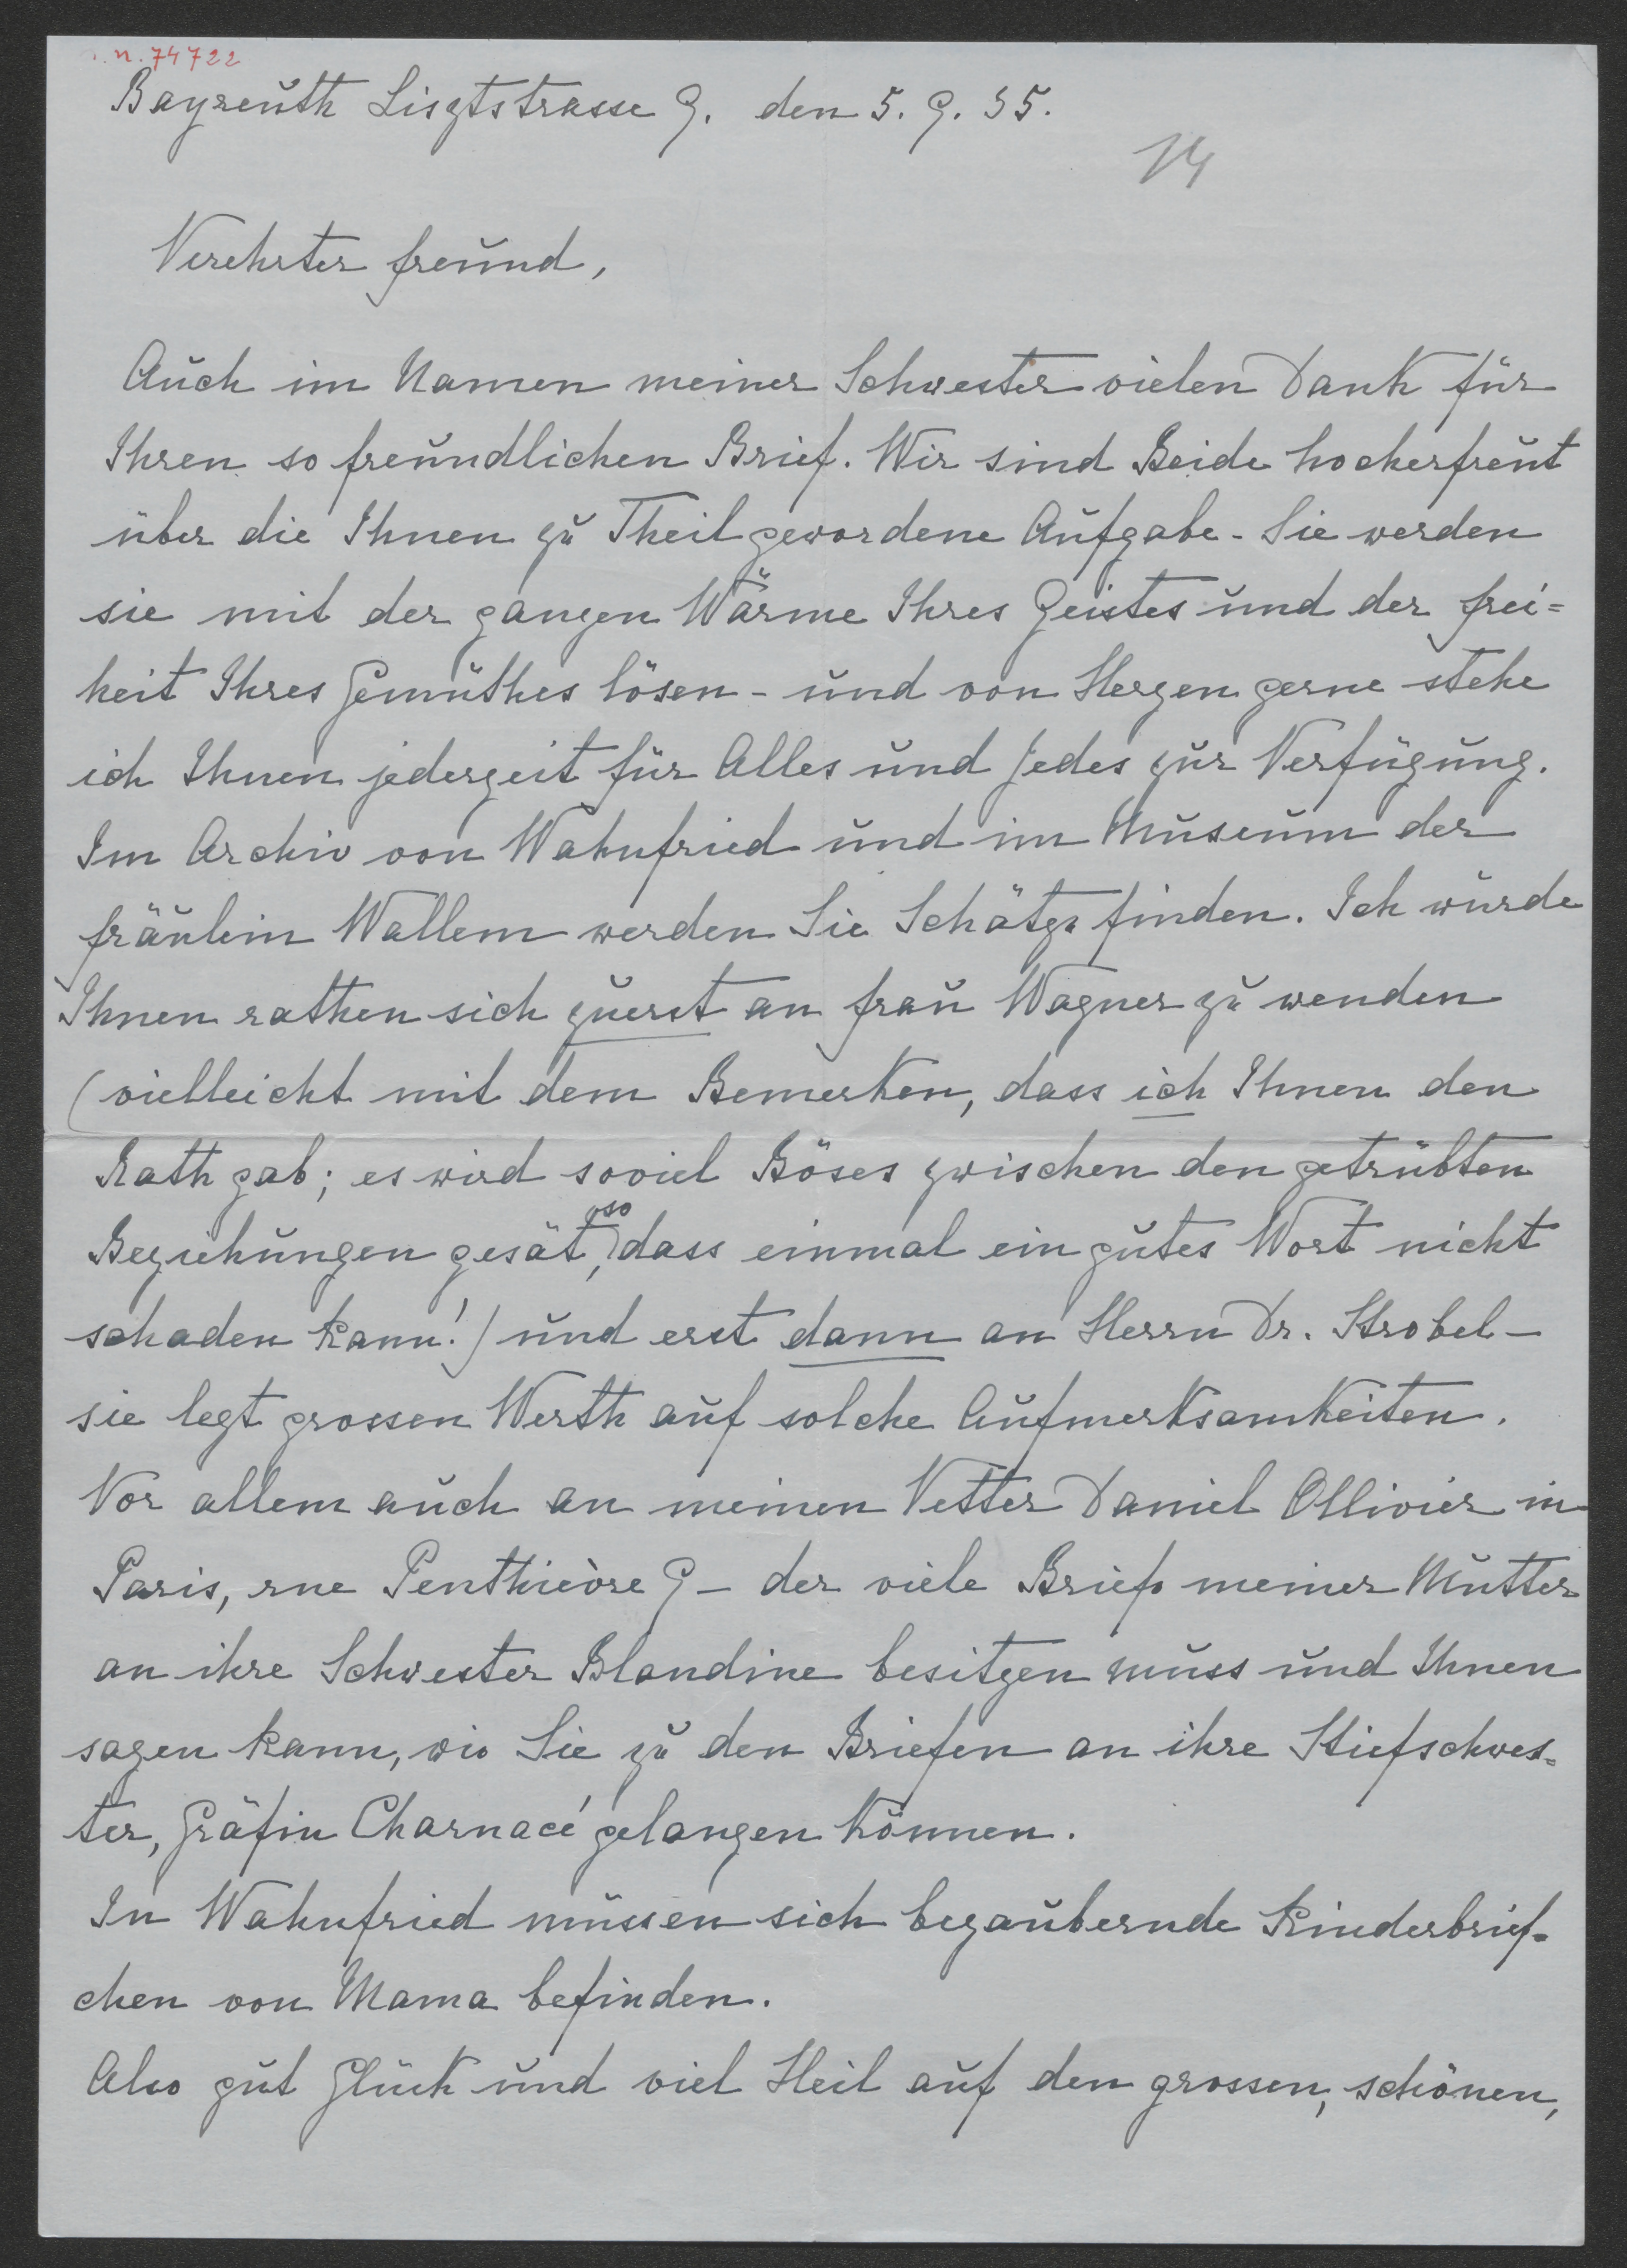 n. 74722
Bayreuth Lisztstrasse 9. den 5. 9. 35.
14
Verehrter Freund,
Auch im Namen meiner Schwester vielen Dank für
Ihren so freundlichen Brief. Wir sind Beide hocherfreut
über die Ihnen zu Theil gewordene Aufgabe - Sie werden
sie mit der ganzen Wärme Ihres Geistes und der Frei=
heit Ihres Gemüthes lösen - und von Herzen gerne stehe
ich Ihnen jederzeit für Alles und Jedes zur Verfügung.
Im Archiv von Wahnfried und im Museum der
Fräulein Wallem werden Sie Schätze finden. Ich würde
Ihnen rathen sich zuerst an Frau Wagner zu wenden
(vielleicht mit dem Bemerken, dass ich Ihnen den
Rath gab; es wird soviel Böses zwischen den getrübten
Beziehungen gesät, so dass einmal ein gutes Wort nicht
schaden kann!) und erst dann an Herrn Dr. Strobel -
sie legt grossen Werth auf solche Aufmerksamkeiten.
Vor allem auch an meinen Vetter Daniel Ollivier in
Paris, rue Penthièvre 9 - der viele Briefe meiner Mutter
an ihre Schwester Blandine besitzen muss und Ihnen
sagen kann, wie Sie zu den Briefen an ihre Stiefschwes=
ter, Gräfin Charnacé gelangen können.
In Wahnfried müssen sich bezaubernde Kinderbrief=
chen von Mama befinden.
Also gut Glück und viel Heil auf den grossen, schönen,